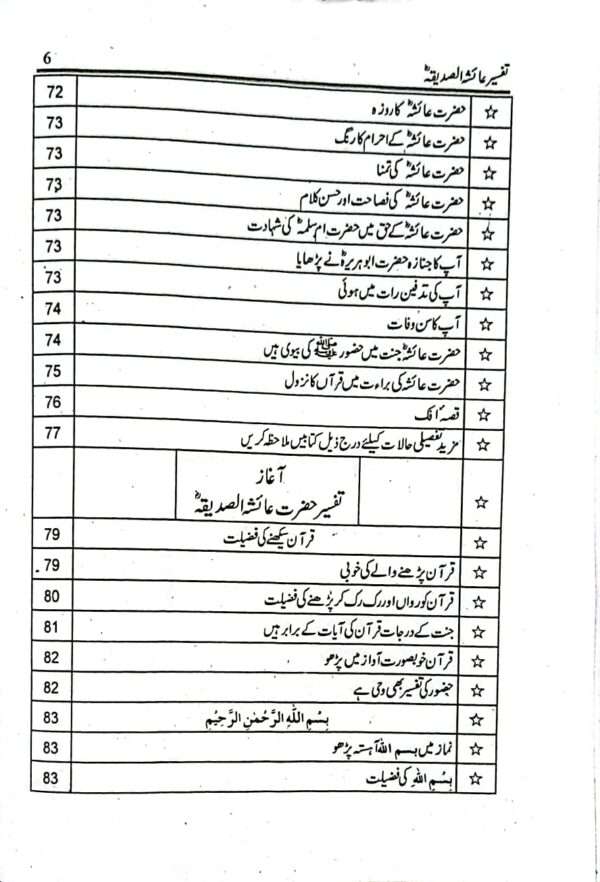 6
تفسیر عائشہ الصدیقہؓ
☆ حضرت عائشہؓ کا روزہ 72
☆ حضرت عائشہؓ کے احرام کا رنگ 73
☆ حضرت عائشہؓ کی تمنا 73
☆ حضرت عائشہؓ کی فصاحت اور حسن کلام 73
☆ حضرت عائشہؓ کے حق میں حضرت ام سلمہؓ کی شہادت 73
☆ آپ کا جنازہ حضرت ابوہریرہؓ نے پڑھایا 73
☆ آپ کی تدفین رات میں ہوئی 73
☆ آپ کا سن وفات 74
☆ حضرت عائشہؓ جنت میں حضور ﷺ کی بیوی ہیں 74
☆ حضرت عائشہ کی براءت میں قرآن کا نزول 75
☆ قصۂ افک 76
☆ مزید تفصیلی حالات کیلئے درج ذیل کتابیں ملاحظہ کریں 77
آغاز
☆ تفسیر حضرت عائشہ الصدیقہؓ
☆ قرآن سیکھنے کی فضیلت 79
☆ قرآن پڑھنے والے کی خوبی 79
☆ قرآن کو رواں اور رک رک کر پڑھنے کی فضیلت 80
☆ جنت کے درجات قرآن کی آیات کے برابر ہیں 81
☆ قرآن خوبصورت آواز میں پڑھو 82
☆ حضور کی تفسیر بھی وحی ہے 82
☆ بِسْمِ اللّٰهِ الرَّحْمٰنِ الرَّحِيْمِ 83
☆ نماز میں بسم اللہ آہستہ پڑھو 83
☆ بِسْمِ اللّٰهِ کی فضیلت 83